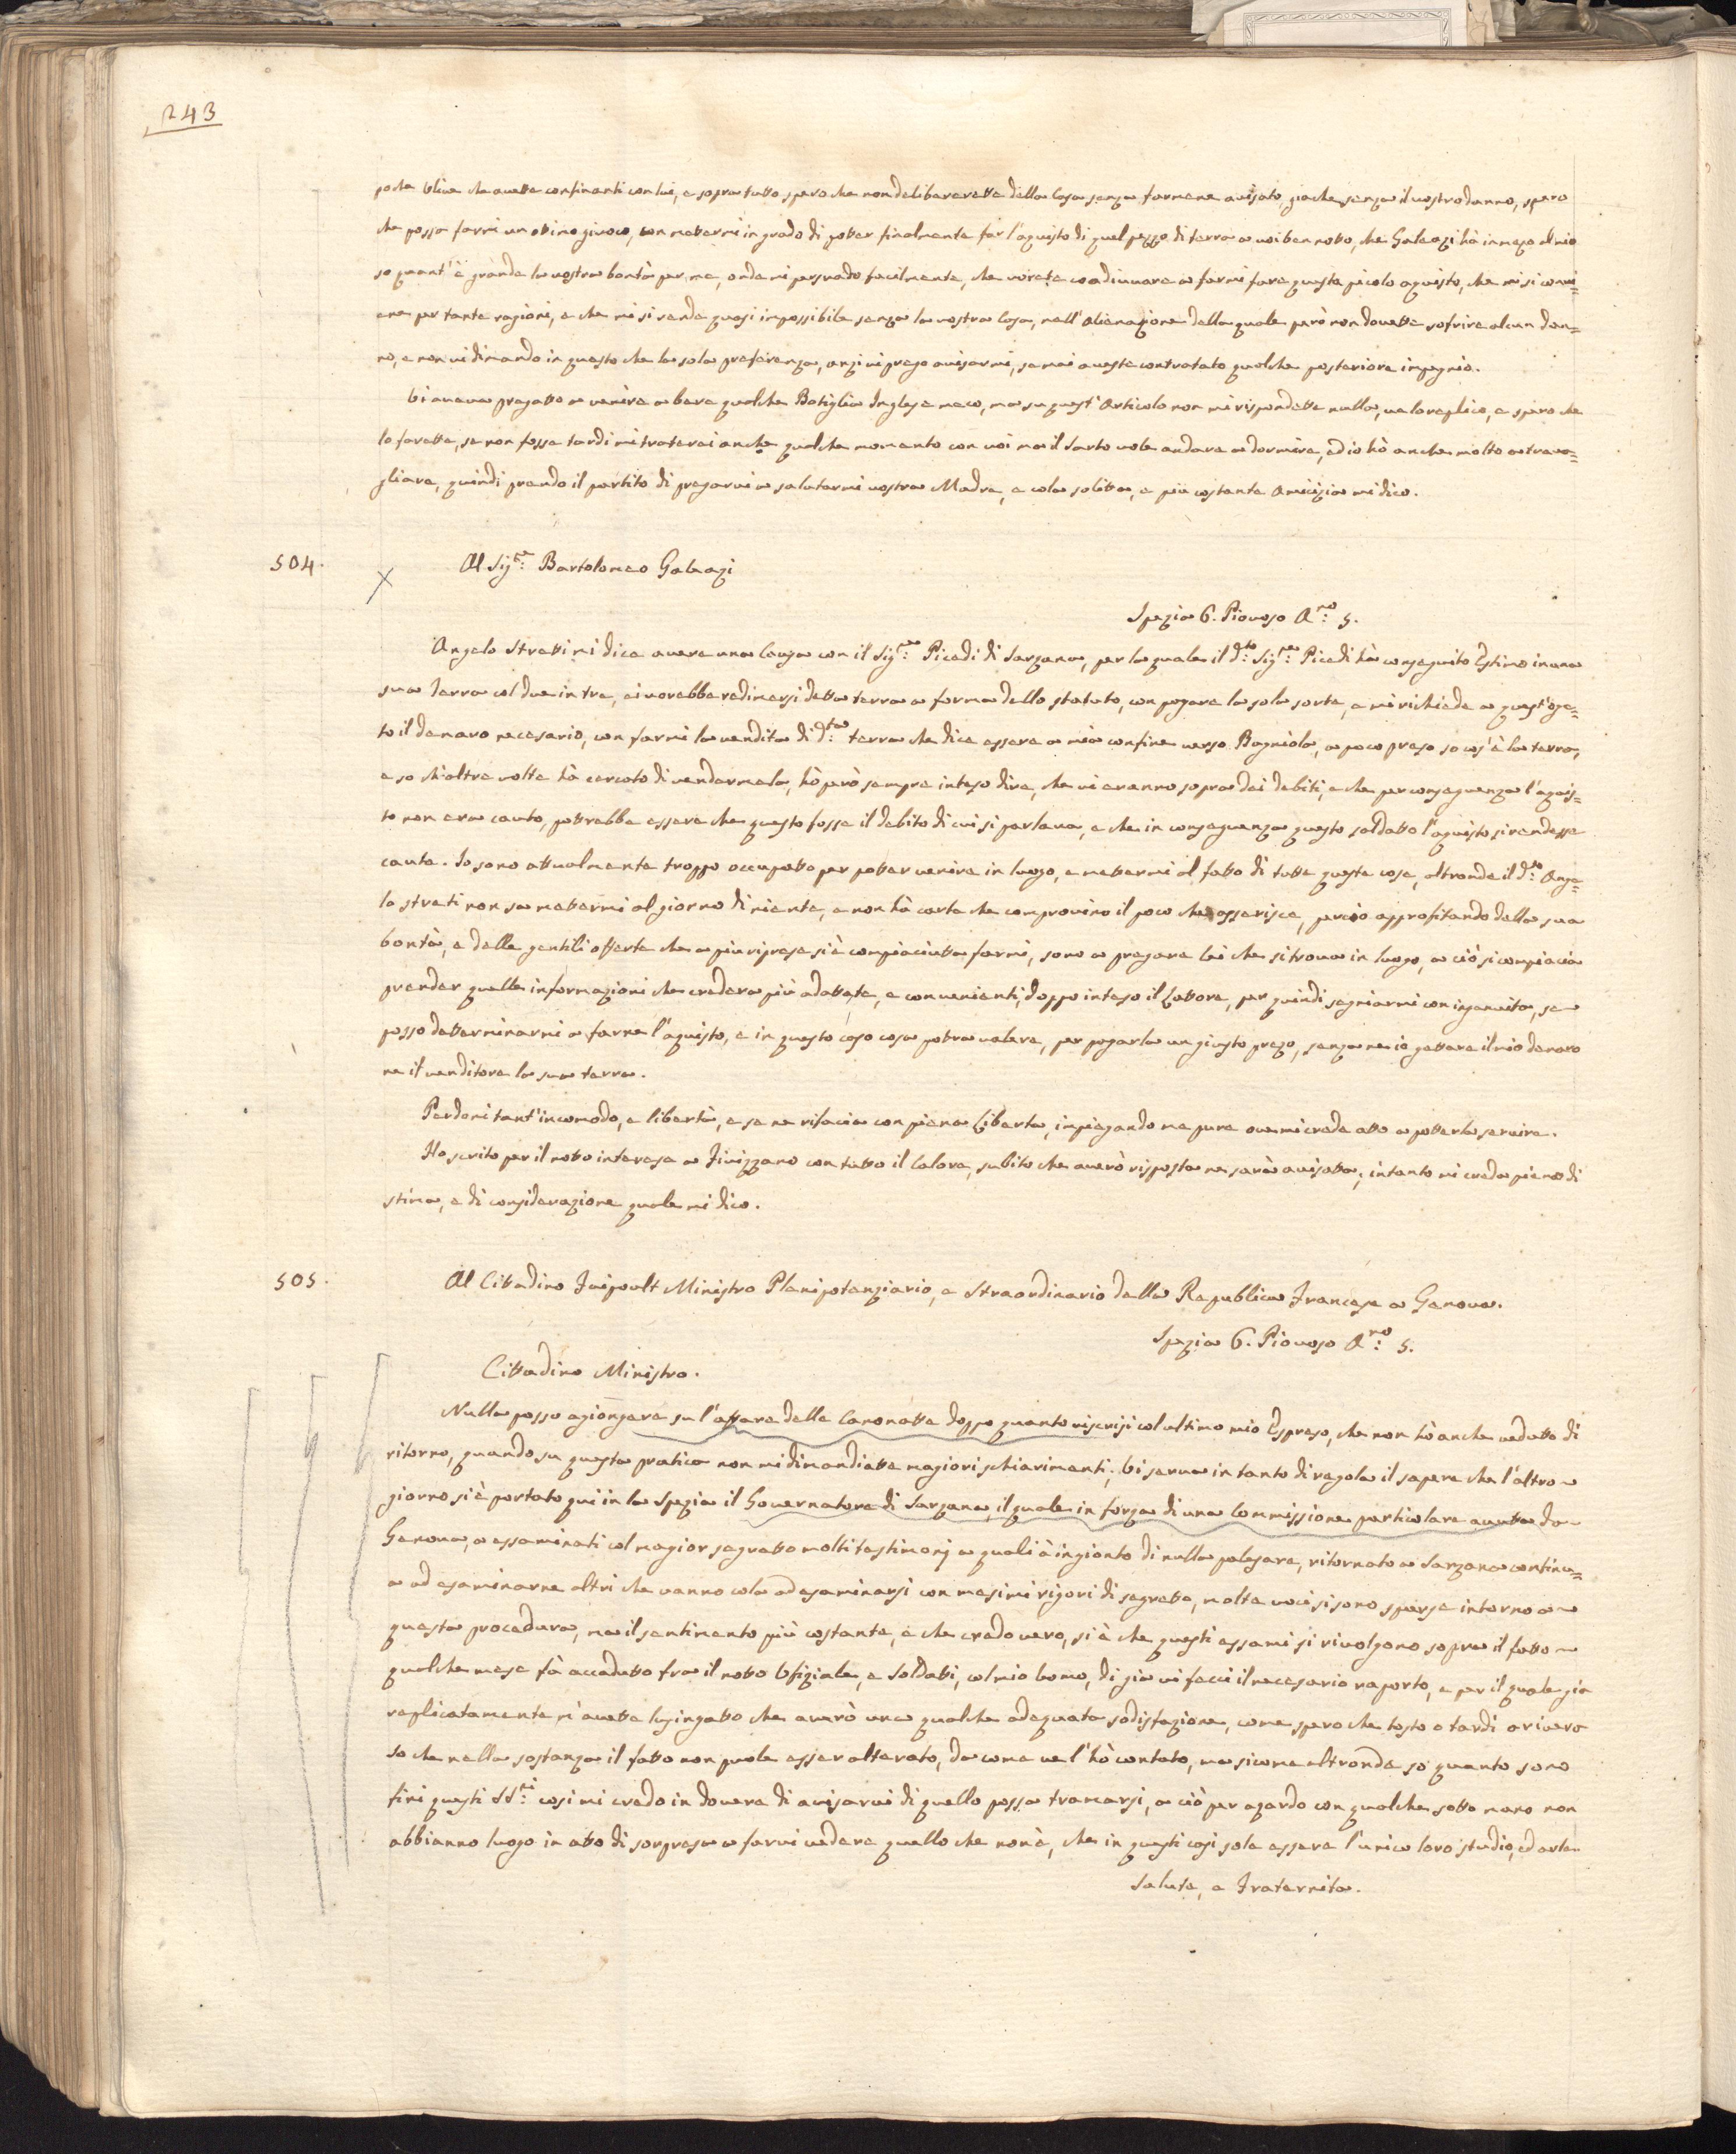 243
poche Ulive che avette confinanti con lui, e sopra tutto spero che non delibererette della Casa senza farmene avisato, gia che senza il vostro danno, spero
che possa farmi un otimo giuoco, con metermi in grado di potter finalmente far l'aquisto di quel pezzo di terra a voi ben notto, che Galeazi hà in mezo al mio
so quant'è grande la vostra bontà per me, onde mi persuado facilmente, che vorete coadiuvare a farmi fare questo picolo aquisto, che mi si convi=
ene per tante ragioni, e che mi si rende quasi impossibile senza la vostra Casa, nell'alienazione della quale però non dovette sofrire alcun dan=
no, e non vi dimando in questo che la sola preferenza, anzi vi prego avisarmi, se mai aveste contratato qualche posteriore impegnio.
Vi aveva pregatto a venire a bere qualche Botiglia Inglese meco, ma su quest'Articolo non mi rispondette nulla, ve lo replico, e spero che
lo farette, se non fosse tardi mi tratterei anche qualche momento con voi ma il Sarto vole andare a dormire, ed io hò anche molto a trava=
gliare, quindi prendo il partito di pregarvi a salutarmi vostra Madre, e cola solita, e più costante Amicizia mi dico.
504.
Al Sig.re Bartolomeo Galeazi
Spezia 6. Piovoso A.no 5.
Angelo Stretti mi dice avere una Causa con il Sig.re Picedi di Sarzana, per la quale il d.to Sig.re Picedi hà conseguito Estimo in una
sua Terra col due in tre, ei vorebbe redimersi detta terra a forma dello statuto, con pagare la sola sorte, e mi richiede a quest'oge=
to il denaro necesario, con farmi la vendita di d.ta terra che dice essere a mio confine verso Bagniola, a poco preso so cos'è la terra,
e so ch'altre volte hà cercato di vendermela, hò però sempre inteso dire, che vi eranno sopra dei debiti, e che per conseguenza l'aquis=
to non era cauto, pottrebbe essere che questo fosse il debito di cui si parlava, e che in conseguenza questo saldatto l'aquisto si rendesse
cauto. Io sono attualmente troppo occupatto per potter venire in luogo, e metermi al fatto di tutte queste cose, altronde il d.to Ange=
lo Stretti non sa metermi al giorno di niente, e non hà carte che comprovino il poco che asserisce, perciò approfitando della sua
bontà, e delle gentili offerte che a più riprese si è compiaciutta farmi, sono a pregare Lei che si trova in luogo, a ciò si compiacia
prender quelle informazioni che crederà più adattate, e convenienti, doppo inteso il Lattore, per quindi segniarmi con ingenuità, se
posso determinarmi a farne l'aquisto, e in questo caso cosa potra valere, per pagarla un giusto prezo, senza ne io gettare il mio denaro
ne il venditore la sua terra.
Perdoni tant'incomodo, e libertà, e se ne rifacia con piena Liberta, impiegando me pure ove mi crede atto a potterla servire.
Ho scrito per il notto interese a Fivizzano con tutto il Calore, subito che averò risposta ne sarà avisatta, intanto mi creda pieno di
stima, e di considerazione quale mi dico.
505.
Al Cittadino Faipoult Ministro Plenipotenziario, e Straordinario della Republica Francese a Genova.
Spezia 6. Piovoso A.no 5.
Cittadino Ministro.
Nulla posso agiongere su l'affare delle Canonatte doppo quanto vi scrisi col ultimo mio Espreso, che non hò anche vedutto di
ritorno, quando su questa pratica non mi dimandiatte magiori schiarimenti. Vi serva in tanto di regola il sapere che l'altro
giorno si è portato qui in la Spezia il Governatore di Sarzana, il quale in forza di una Commissione particolare avutta da
Genova, a essaminati col magior segretto molti testimonj a quali à ingionto di nulla palesare, ritornato a Sarzana continu=
a ad esaminarne altri che vanno cola ad esaminarsi con masimi rigori di segretto, molte voci si sono sparse intorno a
questa procedura, ma il sentimento più costante, e che credo vero, si è che questi essami si rivolgono sopra il fatto
qualche mese fà accadutto fra il notto Ufiziale, e Soldatti, col mio Uomo, di già vi feci il necesario raporto, e per il quale già
replicatamente m'avette lusingatto che averò una qualche adequata sodisfazione, come spero che tosto o tardi arivera
so che nella sostanza il fatto non puole esser alterato, da come ve l'hò contato, ma sicome altronde so quanto sono
fini questi SS.ri cosi mi credo in dovere di avisarvi di quello possa tramarsi, a ciò per azardo con qualche sotto mano non
abbianno luogo in atto di sorpresa a farvi vedere quello che non è, che in questi casi sole essere l'unico loro studio, ed arte
Salute, e Fraternita.